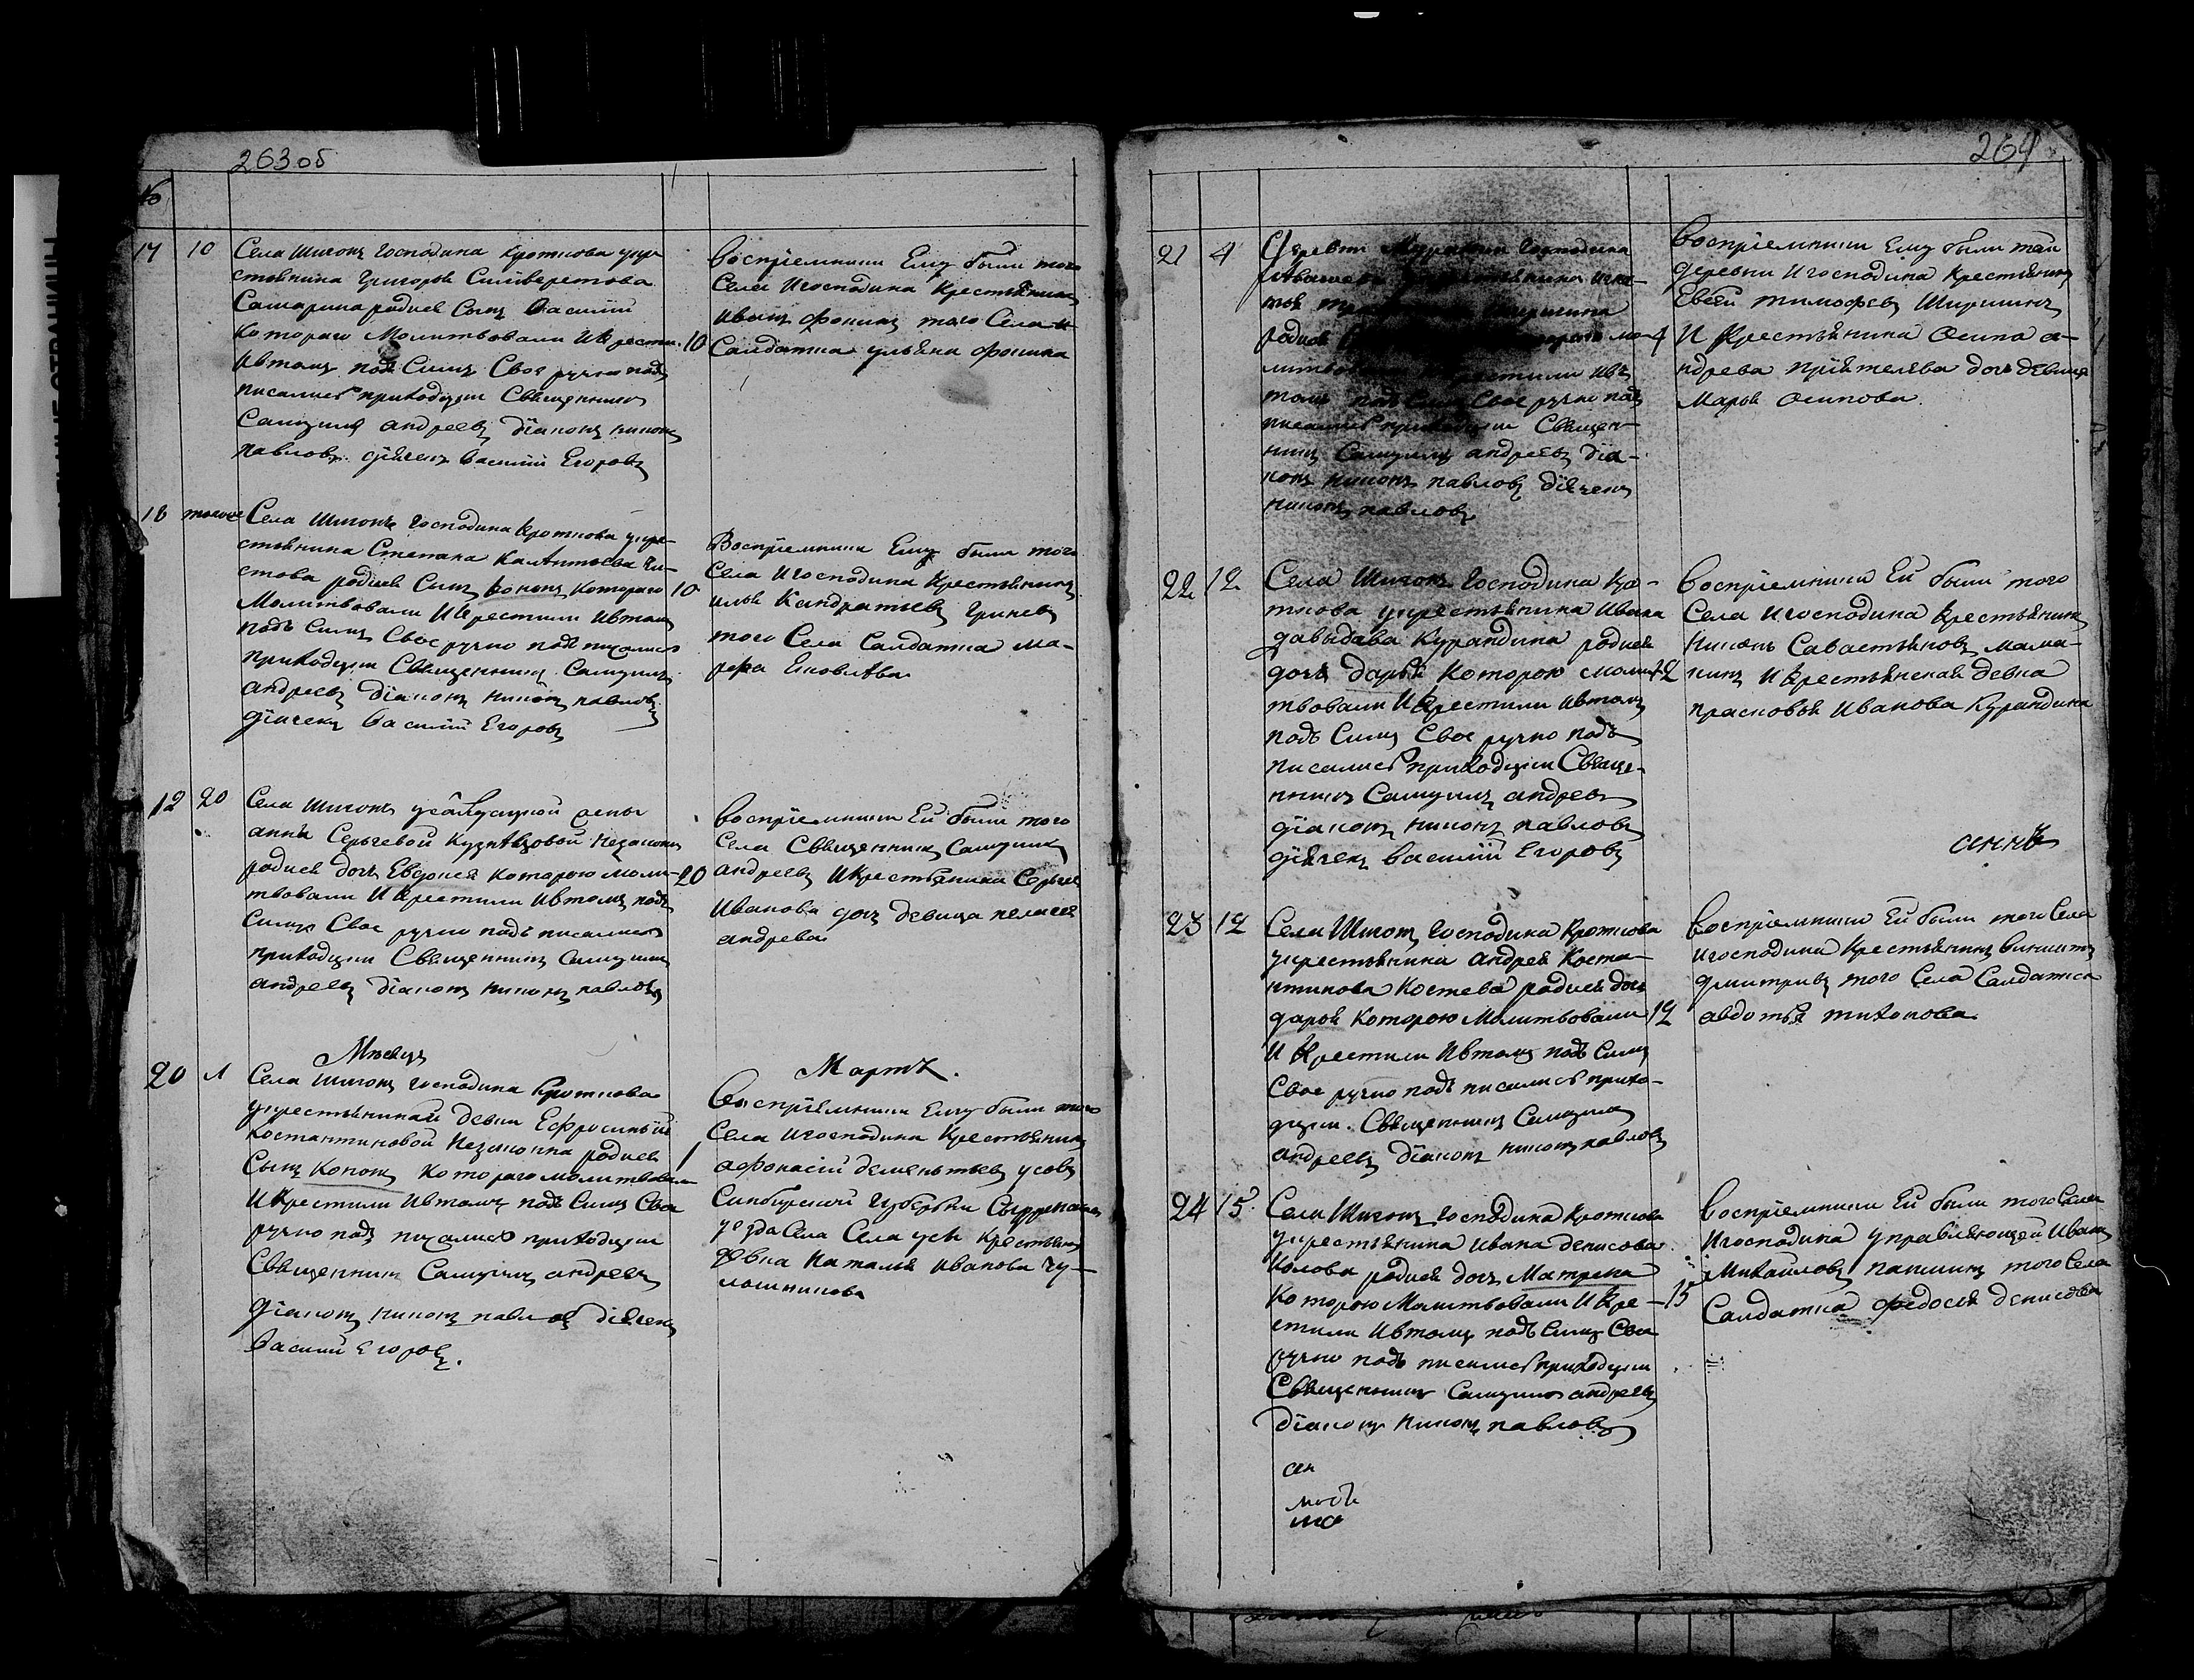 263об
16
17 10 Села Шигонъ Господина Кроткова укре
стьянина Григорья Сильверстова
Самарина родися Сынъ Василий
Котораго Молитвовали И крести- 10
Ивтомъ подъ Симъ Свое ручно подъ
писались приходцкии Священникъ
Самуилъ андреевъ Діаконъ никонъ
павловъ дьячекъ Василии Егоровъ
воспріемники Ему были того
Села И господина Крестьянинъ
иванъ фонинъ того Села и
Салдатка ульяна фонина
18 тогоже Села Шигонъ Господина Кроткова укре-
стьянина Степана
стова родися Сынъ Кононъ Котораго 10
Молитвовали И Крестили Ивтомъ
подъ Симъ Свое ручно подъ писались
приходцкии Священникъ Самуилъ
андреевъ Діаконъ никонъ павловъ
дьячекъ Василий Егоровъ
Воспріемники Ему были того
Села И господина Крестьянинъ
илья Кандратьевъ Гриневъ
того Села Салдатка ма-
рфа Яковлева
19 20 Села Шигонъ
анны Сергеевой Кузнѣцовой незаконно
родися дочь Евдокея Которою моли- 20
твовали И Крестили Ивтомъ подъ
Симъ Свое ручно подъ писались
приходцкии Священникъ Самуилъ
андреевъ Діаконъ никонъ павловъ
воспріемники Ей были того
Села Священникъ Самуилъ
андреевъ И крестьянина Сергея
Иванова дочь девица пелагея
андрева
Мѣсяцъ Мартъ.
20 1 Села Шигонъ Господина Кроткова
укрестьянской девки Ефросиньи
Костантиновой Незаконна родися
Сынъ Кононъ Котораго молитвовали 1
И Крестили Ивтомъ подъ Симъ Свое
ручно подъ писались приходцкии
Священникъ Самуилъ андреевъ
Діаконъ никонъ павловъ діячекъ
Василий Егоровъ.
Воспріемники Ему были того
Села И господина Крестьянинъ
афонасий деменьтьевъ усовъ
Синбирской Губерьни
уезда Села Села усы Крестьянъ
девка Наталья Иванова чу-
лошникова
264
21 4 Деревни Господина
родися
литвовали Крестили Ивъ
томъ подъ Симъ Свое ручно подъ
писались приходцкии Священ-
никъ Самуилъ андреевъ Діа-
конъ никонъ павловъ діячекъ
никонъ павловъ
воспріемники Ему были той
деревни И господина Крестьянинъ
Евсей тимофевъ Ширшинъ
4 И Крестьянина Осипа а-
ндрева пріятелева дочь девица
Марья осипова.
22 12 Села Шигонъ Господина Кро-
ткова укрестьянина Ивана
давыдава Курандина родися
дочь дарья Которою моли- 12
твовали И Крестили Ивтомъ
подъ Симъ Свое ручно подъ
писались приходцкии Свяще-
нникъ Самуилъ андревъ
діаконъ никонъ павловъ
діячекъ Василий Егоровъ
воспріемники Ей были того
Села И господина Крестьянинъ
Никонъ Савастьяновъ мама-
кинъ И Крестьянская девка
прасковья Иванова Курандина
23 12 Села Шигонъ Господина Кроткова
укрестьянина андрея Коста-
нтинова Костева родися дочь
дарья Которою Молитвовали 12
И Крестили Ивтомъ подъ Симъ
Свое ручно подъ писались прихо-
дцкии. Священникъ Самуилъ
андреевъ діаконъ никонъ павловъ
воспріемники Ей были того Села
И господина Крестьянинъ
дмитривъ того Села Салдатка
авдотья тихонова
24 15 Села Шигонъ господина Кроткова
укрестьянина Ивана денисова
родися дочь Матрена
Которою Молитвовали И Кре- 15
стили Ивтомъ подъ Симъ Свое
ручно подъ писались приходцкии
Священникъ Самуилъ андреевъ
діаконъ никонъ павловъ
воспріемники Ей были того Села
И господина управляющей Иванъ
Михайловъ пашинъ того Села
Салдатка федосея денисова